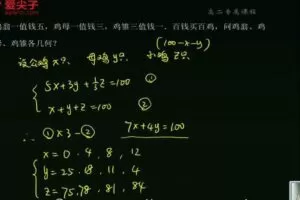 爱尖子
高二专类课程
鸡翁一值钱五，鸡母一值钱三，鸡雏三值钱一。百钱买百鸡，问鸡翁、鸡
、雏各几何？
(100-x-y)
设公鸡 x只、 母鸡 y只、 小鸡 z只
① 5x+3y+⅓z=100
② x+y+z=100
∴ ①×3-② 7x+4y=100
x=0、4、8、12
y=25、18、11、4
z=75、78、81、84